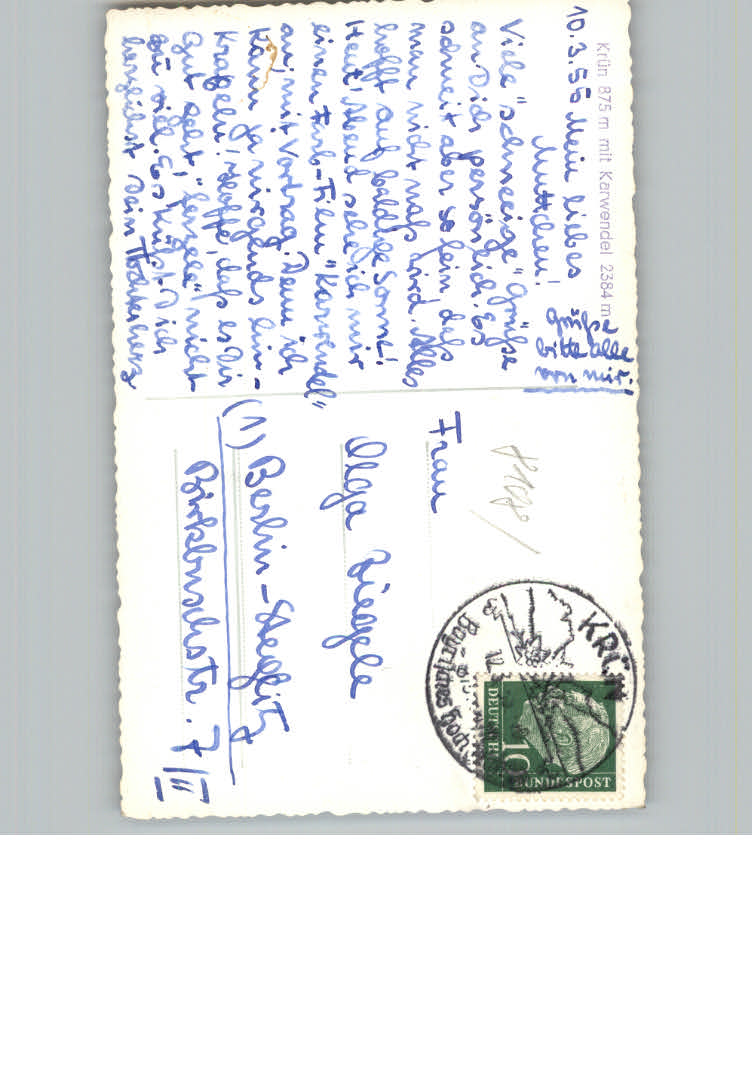 Krün 875 m mit Karwendel 2384 m
10.3.56 Mein liebes
Muttchen!
Viele "schneeige" Grüße
an Dich persönlich. Es
schneit aber so fein daß
man nicht naß wird. Alles
hofft auf baldige Sonne!
Heut' Abend seh ich mir
einen Farb-Film "Karwendel"
an, mit Vortrag. Denn ich
kann ja nirgends hin-
krageln! Hoffe, daß es Dir
gut geht,
zu viel. Es küßt Dich
herzlichst Dein Töchterherz
Grüße
bitte alle
von mir!
Frau
Olga Ziegele
(1) Berlin-Steglitz
Birkbuschstr. 7/II
KRÜN
DEUTSCHE
BUNDESPOST
10